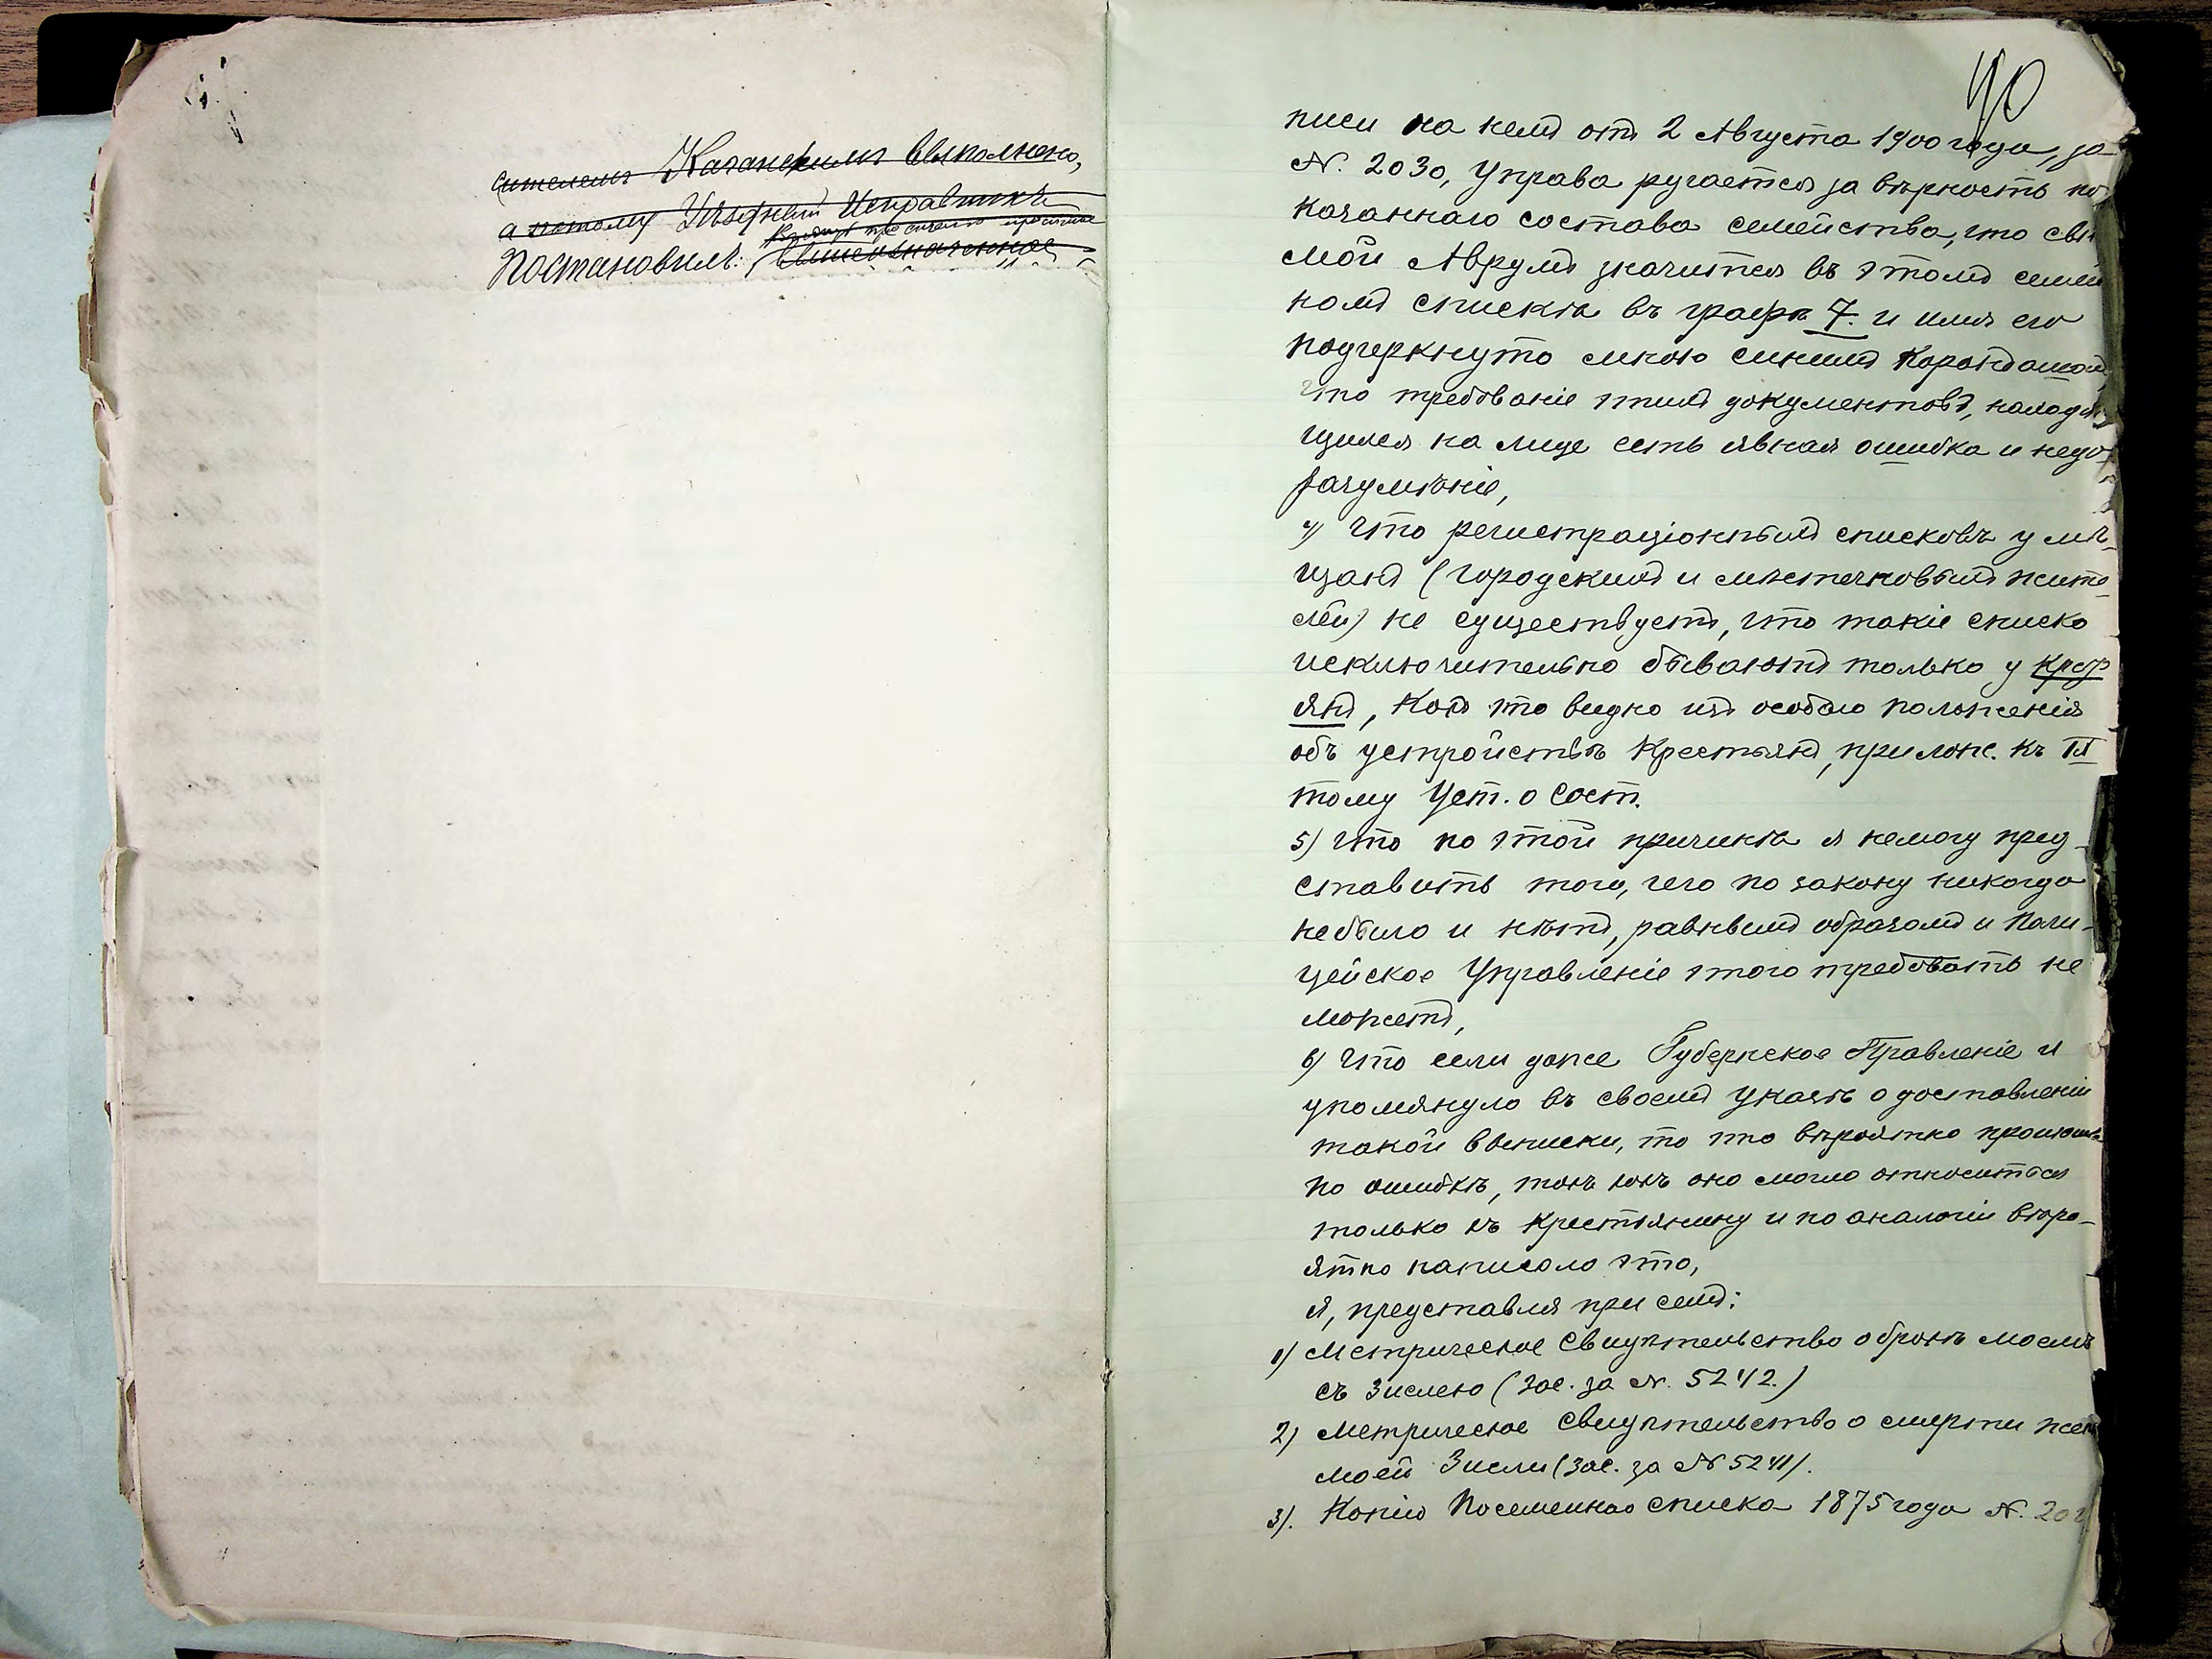 сителемъ Казанскимъ выполнено,
а потому Уѣздный Исправникъ
Постановилъ: вышеозначенное
40
писи на немъ отъ 2 Августа 1900 года, за
N. 2030, Управа ручается за вѣрность по
казаннаго состава семейства, что сы
мой Аврумъ значится въ этомъ семей
номъ спискѣ въ графѣ 7. и имя его
подчеркнуто мною синимъ карандашомъ,
что требованіе этихъ документовъ, находя
щихся на лицо есть явная ошибка и недо
разумѣніе,
4) Что регистраціонныхъ списковъ у мѣ-
щанъ (городскихъ и мѣстечковыхъ жите-
лей) не существуетъ, что такіе списко
исключительно бываютъ только у крес
янъ, какъ это видно изъ особаго положенія
объ устройствѣ крестьянъ, прилож. къ IX
тому Уст. о Сост.
5) Что по этой причинѣ я немогу пред-
ставить того, чего по закону никогда
небыло и нѣтъ, равнымъ образомъ и Поли-
цейское Управленіе этого требовать не
можетъ,
6) Что если даже Губернское Правленіе и
упомянуло въ своемъ указѣ о доставленіи
такой выписки, то это вѣроятно произошл
по ошибкѣ, такъ какъ оно могло относиться
только къ крестьянину и по аналогіи вѣро-
ятно написало это,
я, представля при семъ:
1) Метрическое свидѣтельство о бракѣ моемъ
съ Зислею (зас. за N. 5242.)
2) Метрическое свидѣтельство о смерти жен
моей Зисли (зас. за N 5241).
3). Копію Посемейнаго списка 1875 года N. 202